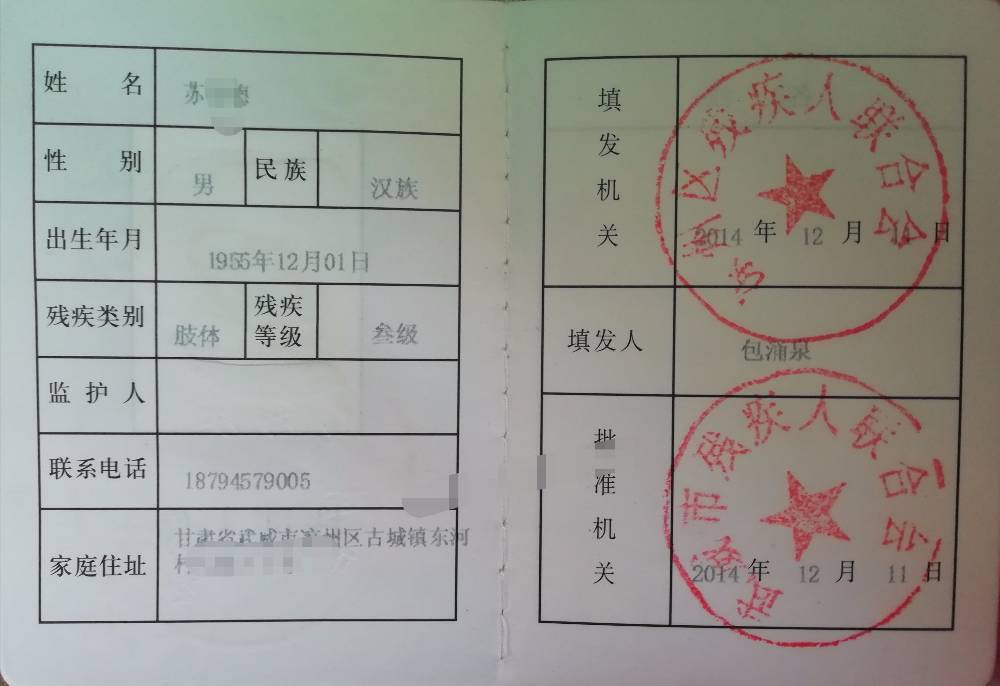 姓名 苏
性别 男 民族 汉族
出生年月 1955年12月01日
残疾类别 肢体 残疾等级 叁级
监护人
联系电话 18794579005
家庭住址 甘肃省武威市凉州区古城镇东河
填发机关 凉州区残疾人联合会
2014年12月11日
填发人 包涌泉
批准机关 武威市残疾人联合会
2014年12月11日